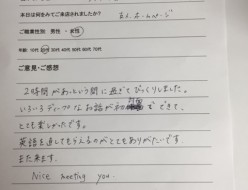 本日は何をみてご来店されましたか？
ご職業性別 男性 ・ 女性
年齢 10代 20代 30代 40代 50代 60代 70代
ご意見・ご感想
2時間があっという間に過ぎてびっくりしました。
いろいろディープなお話が初対面でできて、
とても楽しかったです。
英語を直してもらえるのがとてもありがたいです
また来ます。
Nice meeting you.